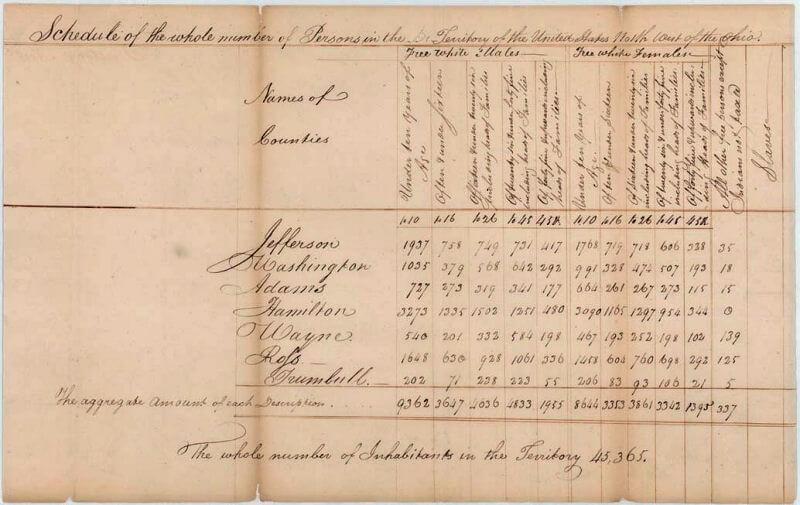 Schedule of the whole number of Persons in the Territory of the United States North West of the Ohio.
Free white Males Free white Females
Names of
Counties
Under ten years of Age
Of ten & under sixteen
Of sixteen & under twenty six including heads of Families
Of twenty six & under forty five including heads of Families
Of forty five & upwards including heads of Families
Under ten years of Age
Of ten & under Sixteen
Of sixteen & under twenty six including heads of Families
Of twenty six & under forty five including heads of Families
Of forty five & upwards includ- ing heads of Families
All other free persons except Indians not taxed
Slaves
to 10 to 16 to 26 to 45 45 & to 10 to 16 to 26 to 45 45 &
Jefferson 1937 758 749 731 417 1768 719 718 606 328 35
Washington 1035 379 568 642 292 991 328 474 507 193 18
Adams 727 273 319 341 177 664 261 267 273 115 15
Hamilton 3273 1335 1502 1251 480 3090 1165 1297 954 344 0
Wayne 540 201 332 584 198 467 193 252 198 102 139
Ross 1648 630 928 1061 336 1458 604 760 698 292 125
Trumbull 202 71 238 223 55 206 83 93 106 21 5
The aggregate amount of each Description. 9362 3647 4636 4833 1955 8644 3353 3861 3342 1395 337
The whole number of Inhabitants in the Territory 45,365.